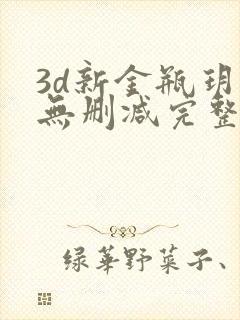 3d新金瓶玥
無删减完整
绿华野菜子、